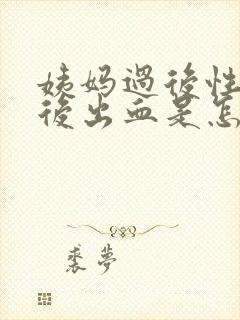 姨妈過後性
後出血是怎
裘夢